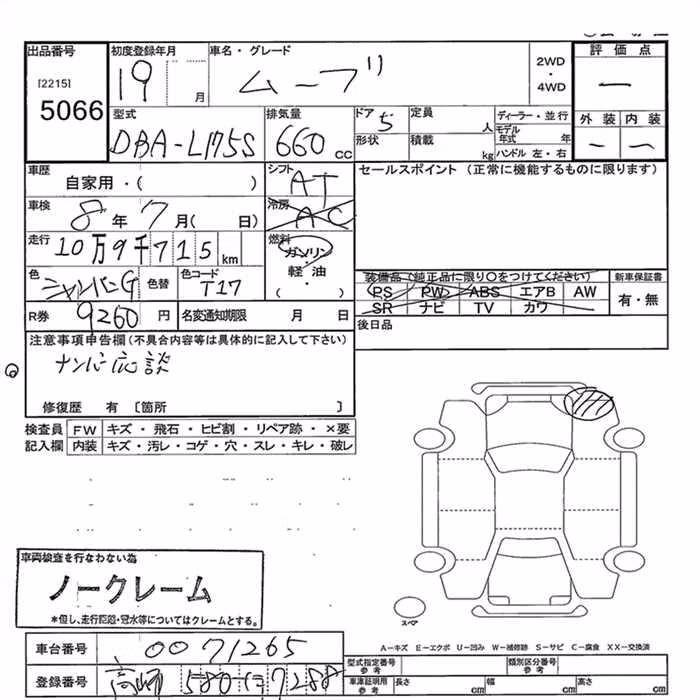 出品番号 初度登録年月 車名・グレード 2WD・4WD 評価点
[2215] 19 月 ムーブ 一
5066
型式 排気量 ドア 5 定員 人 ディーラー・並行 外装 内装
DBA-L175S 660 cc 形状 積載 kg モデル年式 年 ハンドル 左・右 一 一
車歴 シフト AT セールスポイント (正常に機能するものに限ります)
自家用・( )
車検 8年7月( 日) 冷房 AC
走行 10万9千715km 燃料 ガソリン・軽油・( )
色 シャンパンG 色替 色コード T17 装備品(純正品に限り○をつけてください) 新車保証書
PS PW ABS エアB AW 有・無
R券 9260円 名変通知期限 月 日 SR ナビ TV カワ
注意事項申告欄(不具合内容等は具体的に記入して下さい) 後日品
ナンバー応談
修復歴 有 〔箇所 〕
検査員 FW キズ・飛石・ヒビ割・リペア跡・×要
記入欄 内装 キズ・汚レ・コゲ・穴・スレ・キレ・破レ
車両検査を行なわない為
ノークレーム
*但し、走行距離・冠水等についてはクレームとする。
スペア
A-キズ E-エクボ U-凹み W-補修跡 S-サビ C-腐食 XX-交換済
車台番号 0071265 型式指定番号 参考 類別区分番号 参考
登録番号 高崎 580 に 7288 車庫証明用 参考 長さ cm 幅 cm 高さ cm